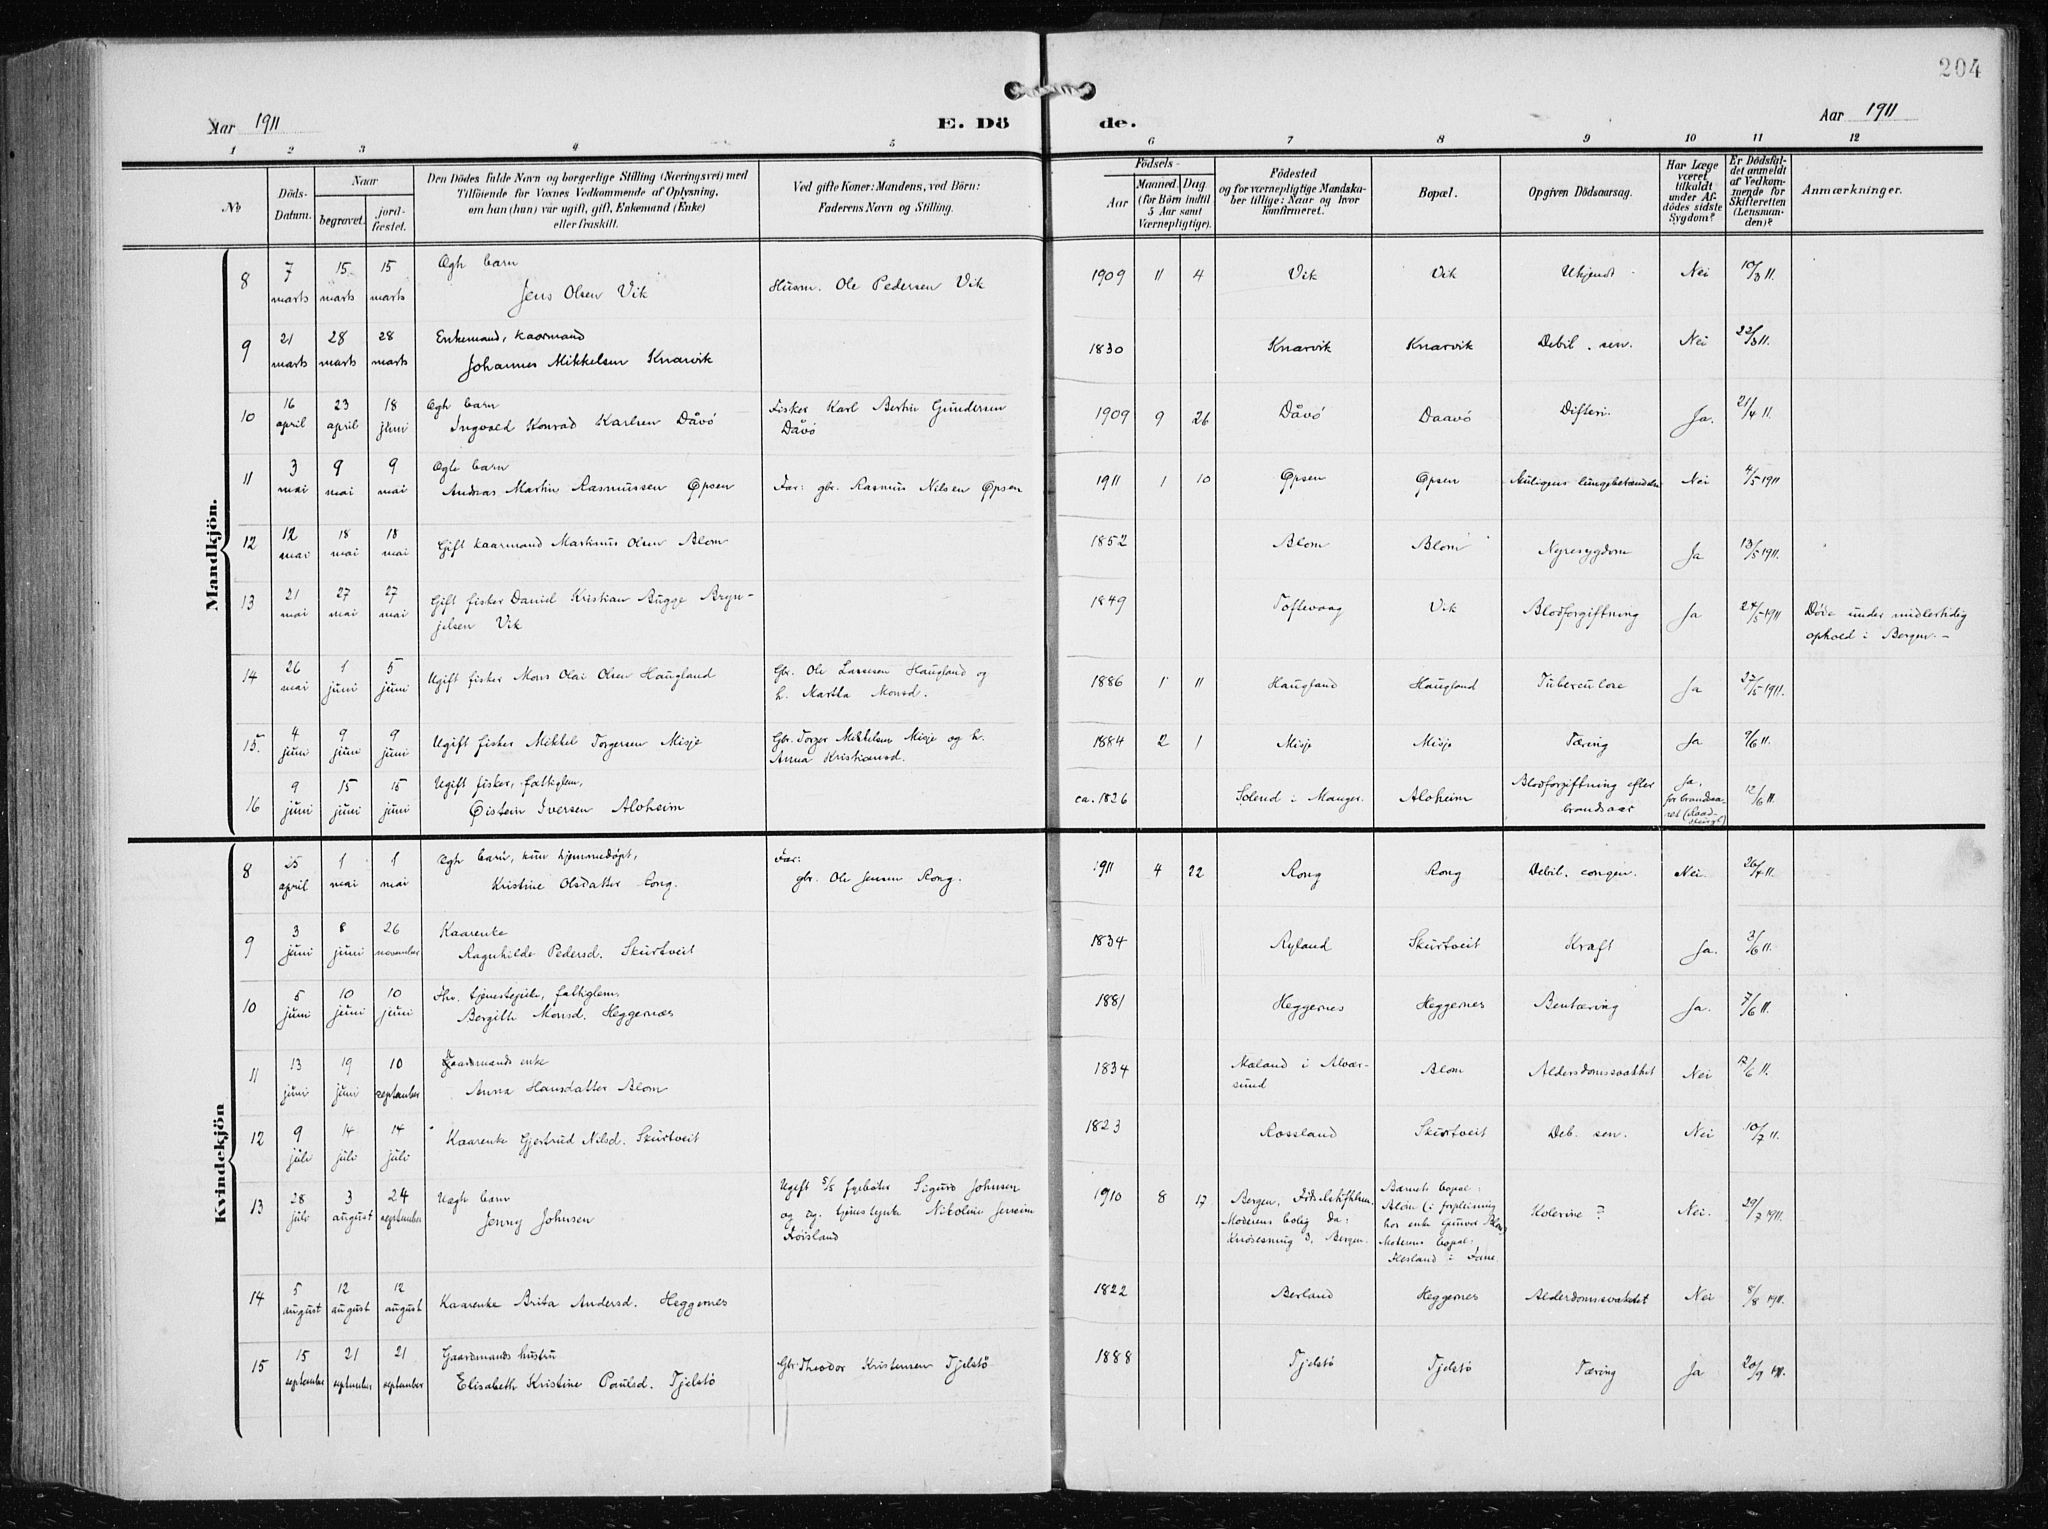 204
Aar 1911
E. Dö
de.
Aar 1911
1 2 3 4 5 6 7 8 9 10 11 12
No
Döds-
Datum.
Naar
begravet.
jord-
fæstet.
Den Dödes fulde Navn og borgerlige Stilling (Næringsvei) med
Tilföiende for Voxnes Vedkommende af Oplysning,
om han (hun) var ugift, gift, Enkemand (Enke)
eller fraskilt.
Ved gifte Koner: Mandens, ved Börn:
Faderens Navn og Stilling.
Födsels-
Aar
Maaned. Dag
(for Börn indtil
5 Aar samt
Værnepligtige).
Födested
og for værnepligtige Mandska-
ber tillige: Naar og hvor
konfirmeret.
Bopæl.
Opgiven Dödsaarsag.
Har Læge
været
tilkaldt
under Af-
dödes sidste
Sygdom?
Er Dödsfal-
det anmeldt
af Vedkom-
mende for
Skifteretten
(Lensman-
den)?
Anmærkninger.
Mandkjön.
8 7 marts 15 marts 15 marts Ægh barn
Jens Olsen Vik Husm. Ole Pedersen Vik 1909 11 4 Vik Vik Ukjendt Nei 10/3 11.
9 21 marts 28 marts 28 marts Enkemand, kaarmand
Johannes Mikkelsen Knarvik 1830 Knarvik Knarvik Debil. sen. Nei 22/3 11.
10 16 april 23 april 18 juni Ægh barn
Ingvald Konrad Karlsen Dåvö Fisker Karl Bertin Gundersen
Dåvö 1909 9 26 Dåvö Daavö Difteri. Ja. 21/4 11.
11 3 mai 9 mai 9 mai Ægte barn
Andreas Martin Rasmussen Øpsen Far: gbr. Rasmus Nilsen Øpsen 1911 1 10 Øpsen Øpsen Nei 4/5 1911
12 12 mai 18 mai 18 mai Gift kaarmand Markus Olsen Blom 1852 Blom Blom Nyresygdom Ja 13/5 1911.
13 21 mai 27 mai 27 mai Gift fisker Daniel Kristian Bugge Bryn-
jelsen Vik 1849 Toftevaag Vik Blodforgiftning Ja 24/5 1911 Døde under midlertidig
ophold i Bergen. –
14 26 mai 1 juni 5 juni Ugift fisker Mons Olai Olsen Haugland Gbr. Ole Larssen Haugland og
h. Martha Monsd. 1886 1 11 Haugland Haugland Tuberculose Ja 27/5 1911.
15. 4 juni 9 juni 9 juni Ugift fisker Mikkel Torgersen Misje Gbr. Torger Mikkelsen Misje og h.
Anna Kristiansd. 1884 2 1 Misje Misje Tæring Ja 9/6 11.
16 9 juni 15 juni 15 juni Ugift fisker, fattiglem,
Øistein Iversen Aloheim ca. 1826 Solend i Manger Aloheim Blodforgiftning efter
brandsaar Ja,
for brandsaa-
ret 12/6 11.
Kvindekjön
8 25 april 1 mai 1 mai Ægh barn, kun hjemmedøpt,
Kristine Olsdatter Rong. Far:
gbr. Ole Jensen Rong. 1911 4 22 Rong Rong Debil. congen. Nei 26/4 11.
9 3 juni 8 juni 26 november Kaarenke
Ragnhilde Pedersd. Skurtveit 1834 Ryland Skurtveit Kræft Ja. 3/6 11.
10 5 juni 10 juni 10 juni Fhv. tjenestepike, fattiglem,
Bergithe Monsd. Heggernæs 1881 Heggernes Heggernes Bentæring Ja. 7/6 11.
11 13 juni 19 juni 10 september Gaardmands enke
Anna Hansdatter Blom 1834 Maland i Alvær-
sund Blom Aldersdomssvakhet Nei 17/6 11.
12 9 juli 14 juli 14 juli Kaarenke Gjertrud Nilsd. Skurtveit 1823 Rossland Skurtveit Deb. sen. Nei 10/7 11.
13 28 juli 3 august 24 september Uægh barn
Jenny Johnsen Ugift fyrbøter Sigurd Johnsen
og ug. tjenestepike Nikoline
1910 8 17 Bergen, Fødselsstiftelsen
Moderens bolig da:
3, Bergen. Barnets bopæl:
Blom (i forpleining
hos enke
Moderens bopæl:
i Fane Kolerine? Nei. 29/7 1911.
14 5 august 12 august 12 august Kaarenke Brita Andersd. Heggernes 1822 Berland Heggernes Alderdomssvakhet Nei 8/8 1911.
15 15 september 21 september 21 september Gaardmands hustru
Elisabeth Kristine Poulsd. Tjelstø Gbr. Theodor Kristensen Tjelstø 1888 Tjelstø Tjelstø Tæring Ja 20/9 1911.